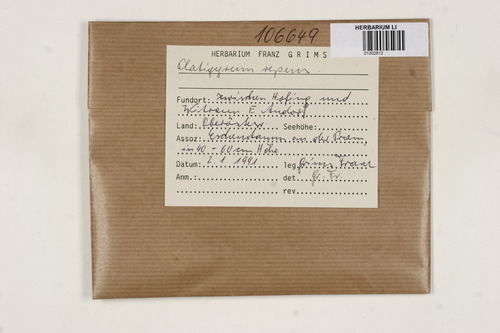 106649
HERBARIUM LI
01002812
HERBARIUM FRANZ GRIMS
Platigyrium repens
Fundort: zwischen Hofing und
E Andorf
Land: Oberösterr. Seehöhe:
Assoz: an der Pram,
in 40 - 60 cm Höhe
Datum: 2.1.1991 leg. Grims Franz
Anm.: det. Gr. Fr.
rev.